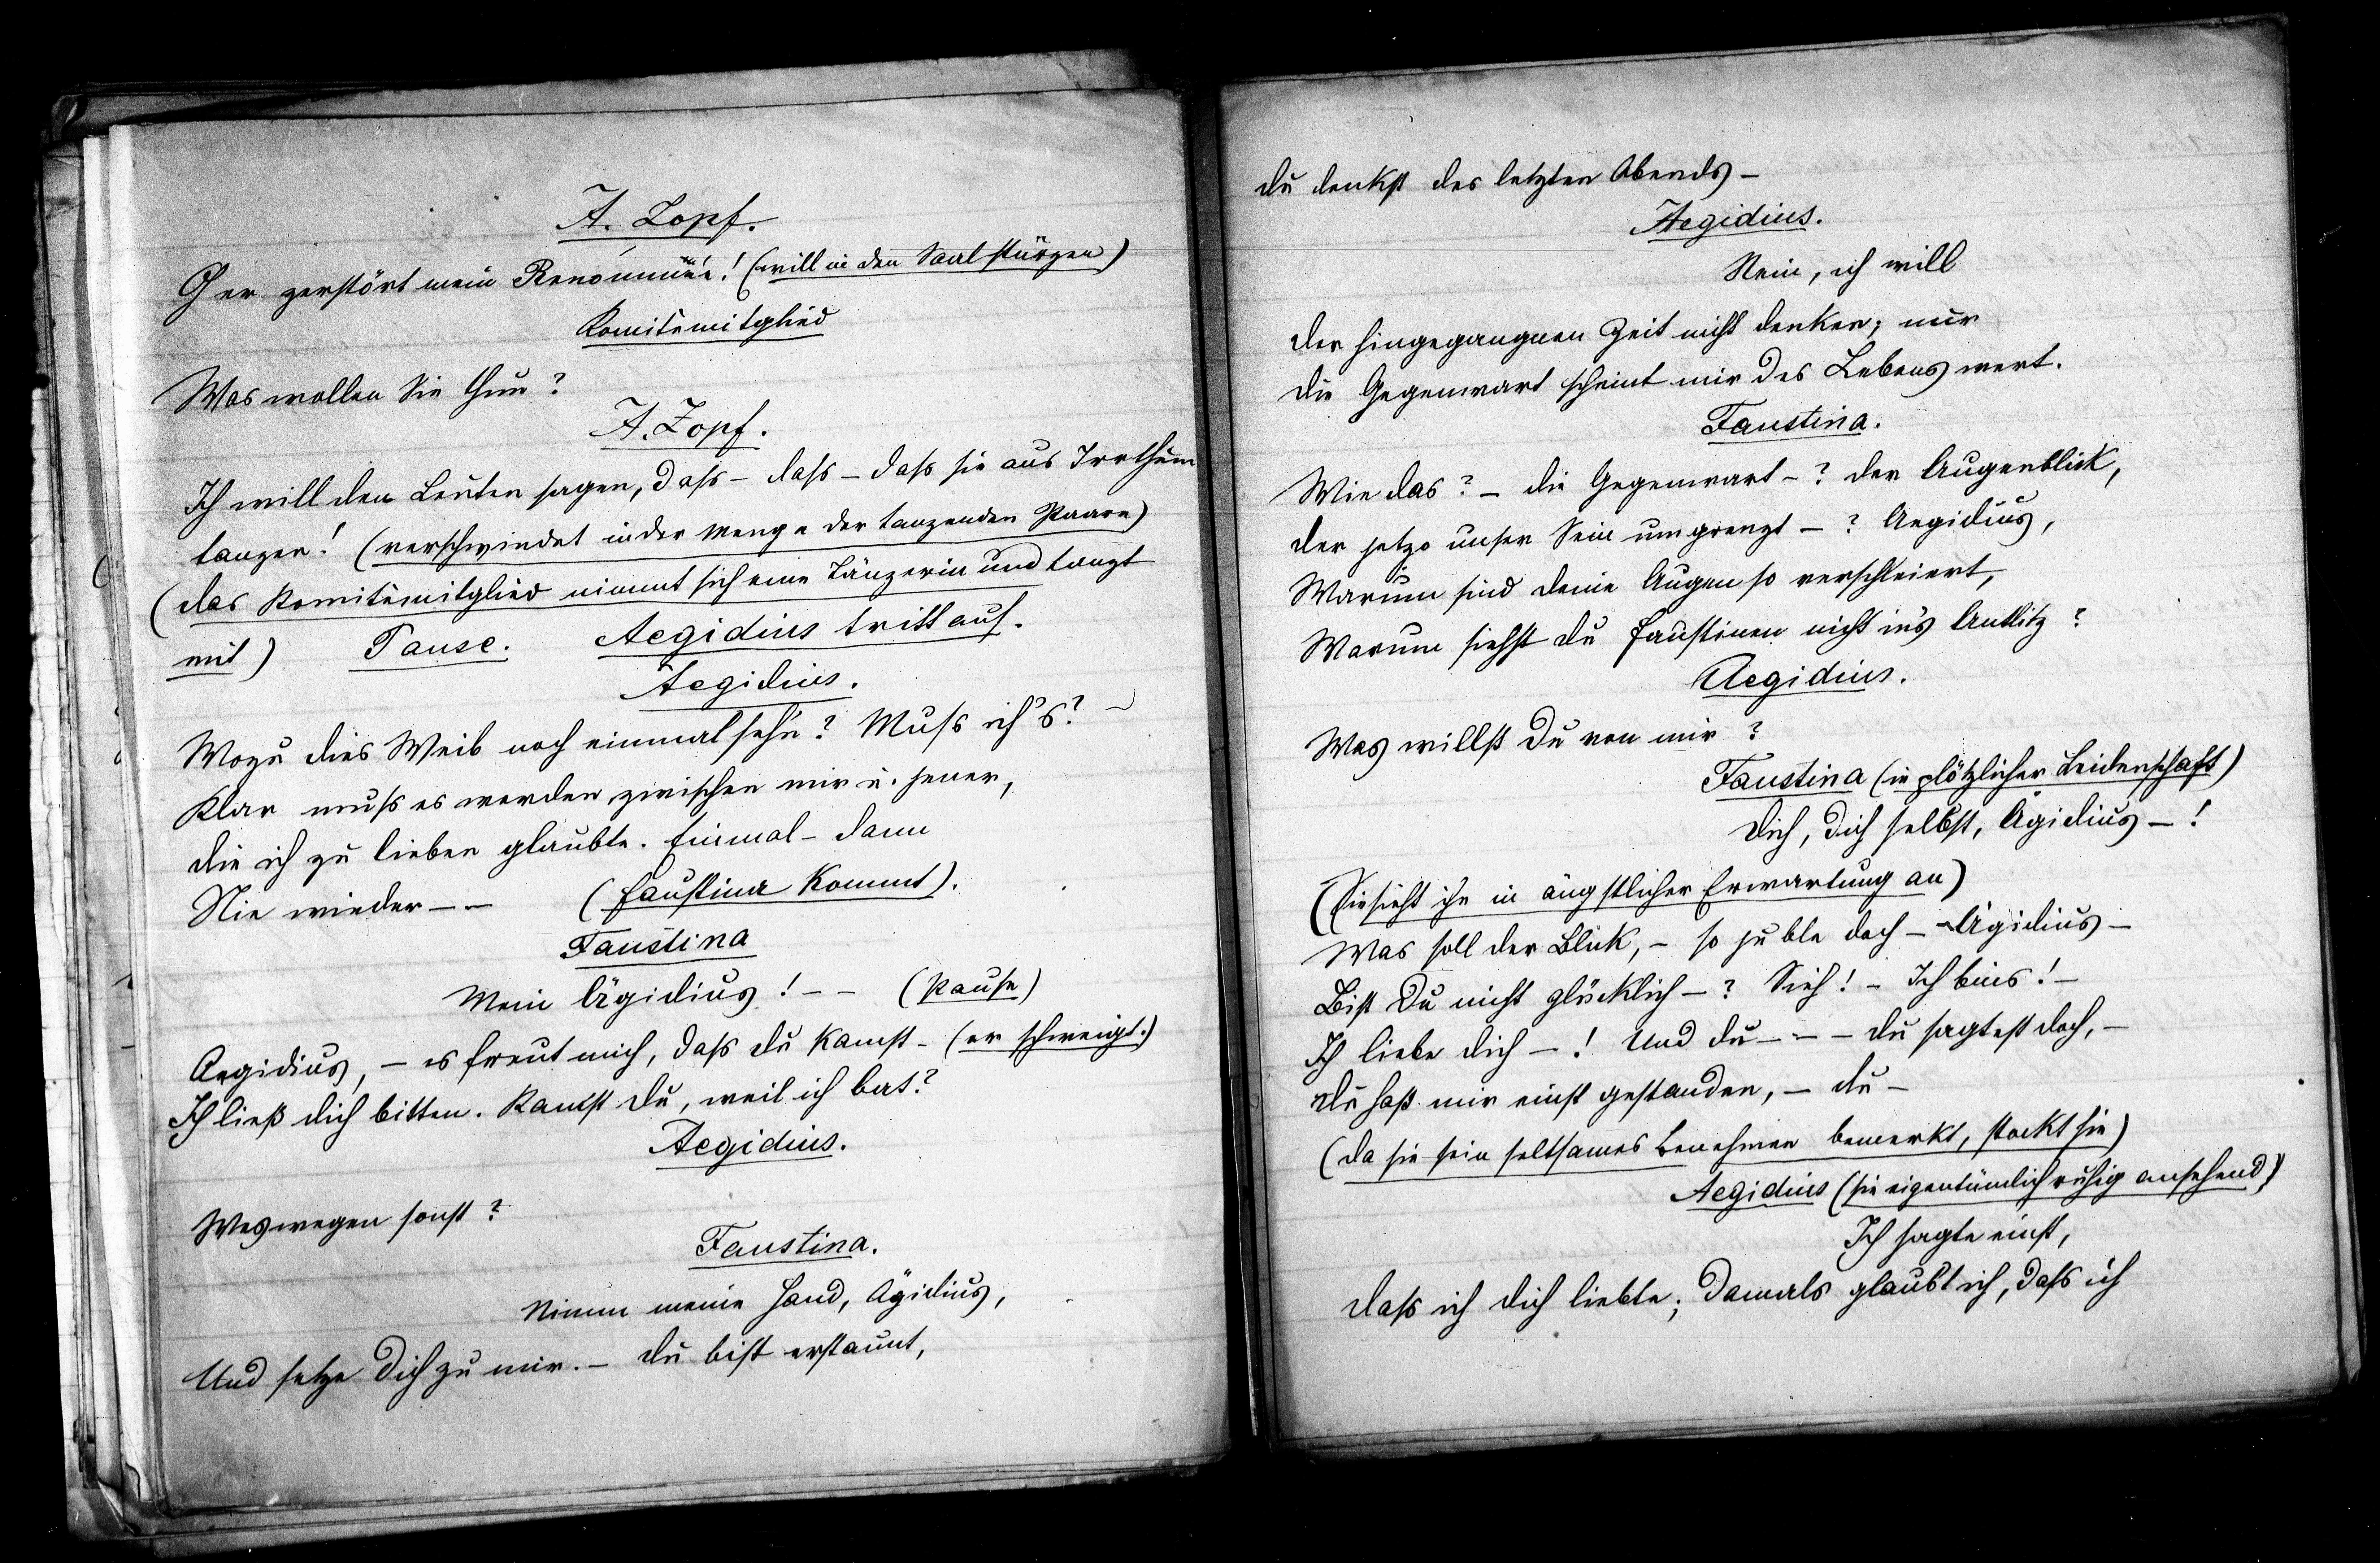 A. Zopf.
O er zerstört mein Renommée! (will in den Saal stürzen)
Komitémitglied
Was wollen Sie thun?
A. Zopf.
Ich will den Leuten sagen, dass - dass - dass sie aus Irrthum
tanzen! (verschwindet in der Menge der tanzenden Paare)
(das Komitémitglied nimmt sich eine Tänzerin und tanzt
mit) Pause. Aegidius tritt auf.
Aegidius.
Wozu dies Weib noch einmal sehn? Muss ich's? -
Klar muss es werden zwischen mir u. jener,
die ich zu lieben glaubte. Einmal - dann
Nie wieder - - (Faustina kommt).
Faustina
Mein Ägidius! - - (Pause)
Aegidius, - es freut mich, dass du kamst - (er schweigt.)
Ich ließ dich bitten. Kamst du, weil ich bat?
Aegidius.
Weswegen sonst?
Faustina.
Nimm meine Hand, Ägidius,
Und setze dich zu mir. - du bist erstaunt,
du denkst des letzten Abends -
Aegidius.
Nein, ich will
der hingegangnen Zeit nicht denken; nur
die Gegenwart scheint mir des Lebens wert.
Faustina.
Wie das? - die Gegenwart - ? der Augenblick,
der jetzo unser Sein umgrenzt - ? Aegidius,
Warum sind deine Augen so verschleiert,
Warum siehst du Faustinen nicht in's Antlitz?
Aegidius.
Was willst du von mir?
Faustina (in plötzlicher Leidenschaft)
Dich, dich selbst, Ägidius - !
(Sie sieht ihn in ängstlicher Erwartung an)
Was soll der Blick, - so juble doch - - Ägidius -
Bist du nicht glücklich - ? Sieh! - Ich bins! -
Ich liebe dich - ! Und du - - - du sagtest doch, -
du hast mir einst gestanden, - du -
(da sie sein seltsames Benehmen bemerkt, stockt sie)
Aegidius (sie eigentümlich ruhig ansehend)
Ich sagte einst,
dass ich dich liebte; damals glaubt ich, dass ich